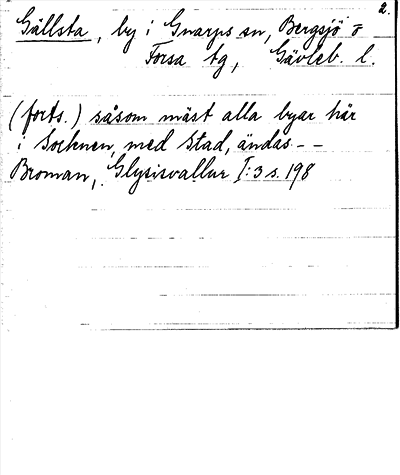 2.
Gällsta, by i Gnarps sn, Bergsjö o
Forsa tg, Gävleb. l.
(forts.) såsom mäst alla byar här
i Socknen, med stad, ändas - -
Broman, Glysisvallur I:3 s. 198